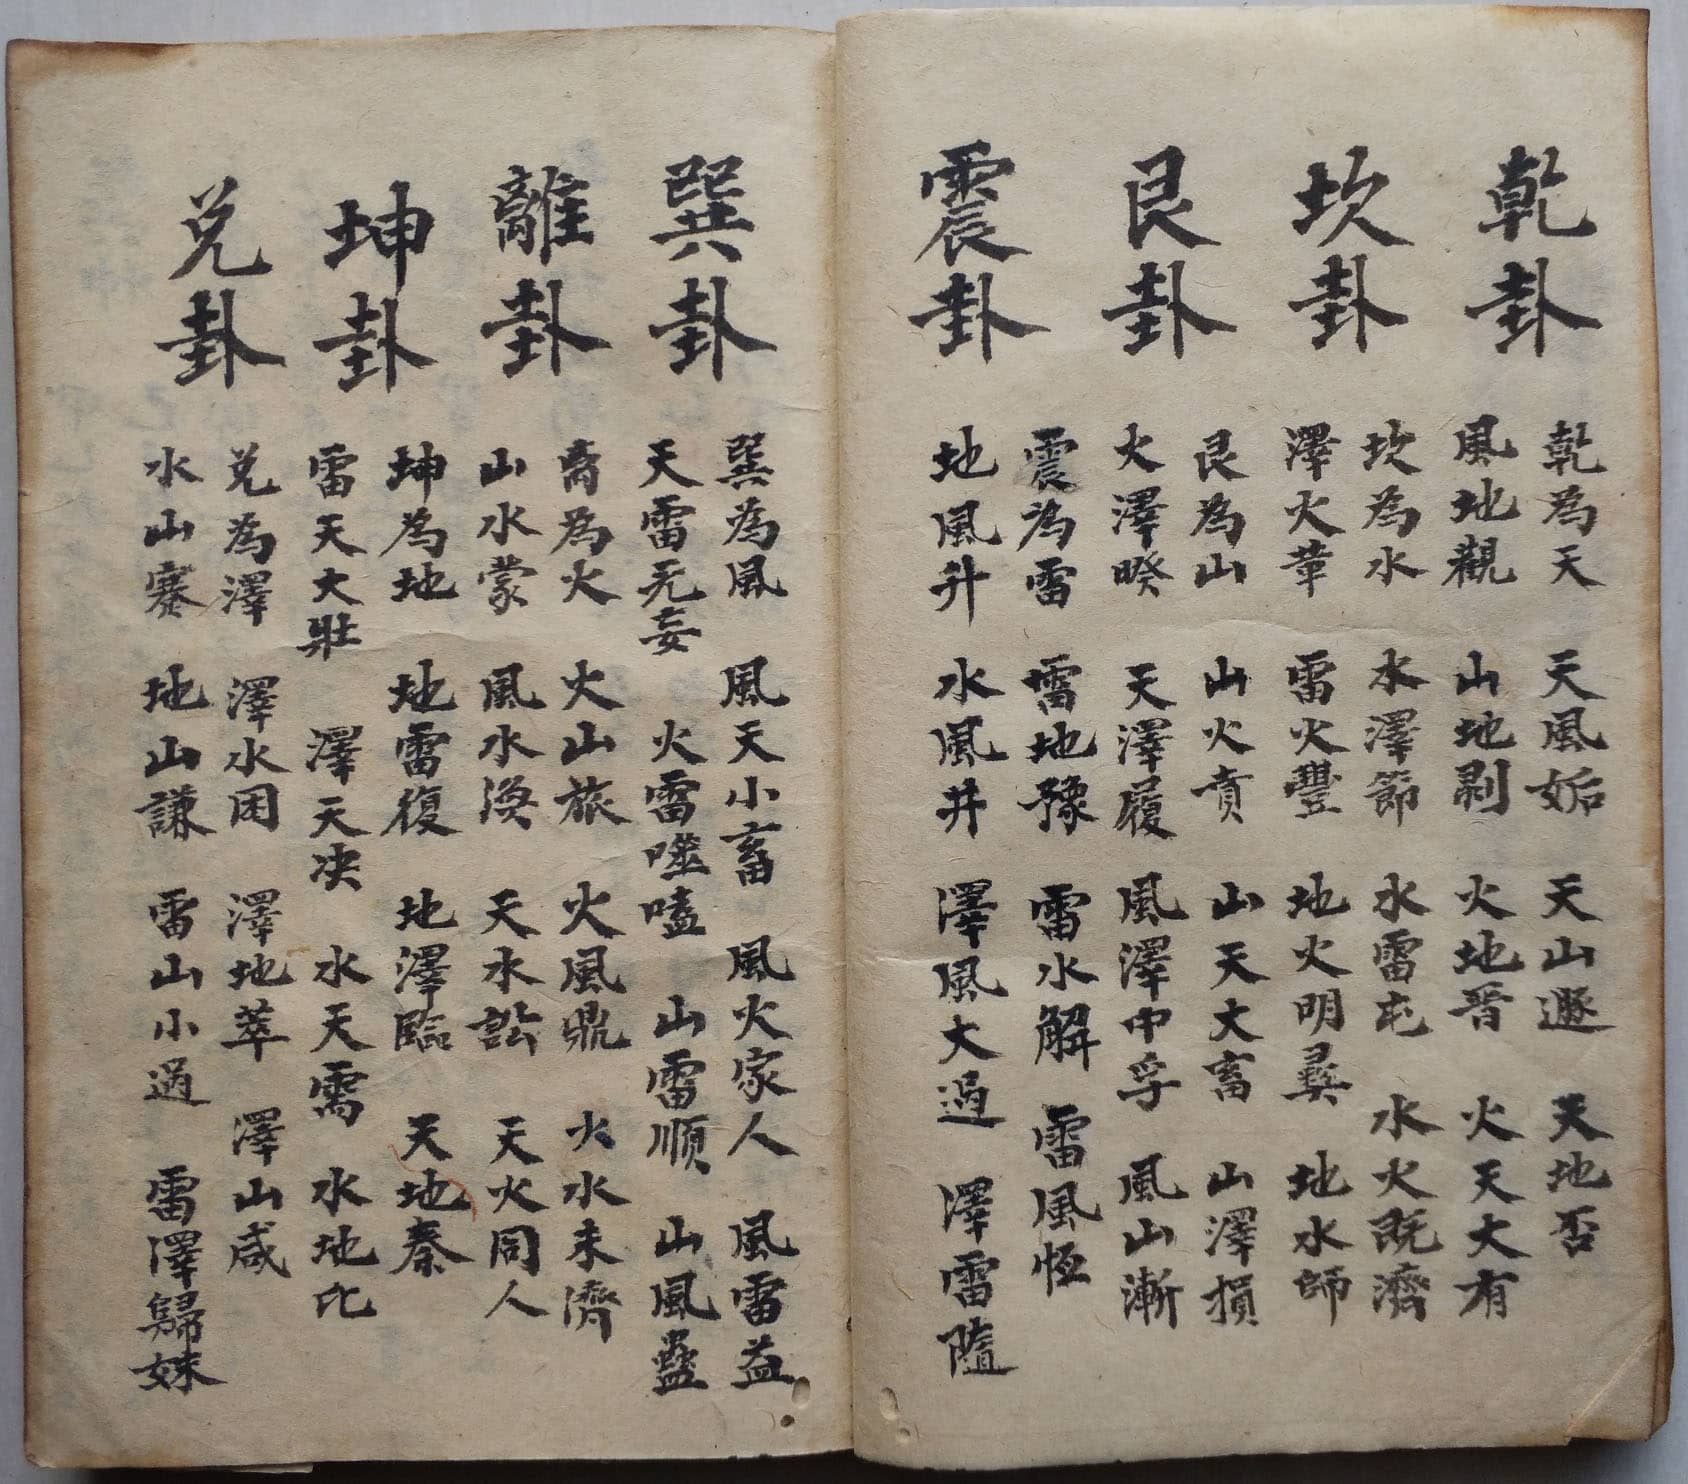 乾卦
乾為天 天風姤 天山遯 天地否
風地觀 山地剥 火地晋 火天大有
坎卦
坎為水 水澤節 水雷屯 水火既濟
澤火革 雷火豐 地火明彛 地水師
艮卦
艮為山 山火賁 山天大畜 山澤損
火澤暌 天澤履 風澤中孚 風山漸
震卦
震為雷 雷地豫 雷水解 雷風恆
地風升 水風井 澤風大過 澤雷隨
巽卦
巽為風 風天小畜 風火家人 風雷益
天雷无妄 火雷噬嗑 山雷順 山風蠱
離卦
离為火 火山旅 火風鼎 火水未濟
山水蒙 風水渙 天水訟 天火同人
坤卦
坤為地 地雷復 地澤臨 天地秦
雷天大壯 澤天决 水天需 水地比
兑卦
兑為澤 澤水困 澤地萃 澤山咸
水山蹇 地山謙 雷山小過 雷澤歸妹